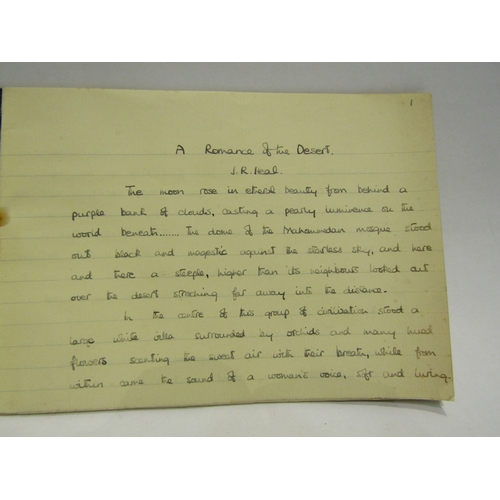 1
A Romance of the Desert.
J. R. Heal.
The moon rose in etheral beauty from behind a
purple bank of clouds, casting a pearly luminence on the
world beneath....... the dome of the Mahommedan mosque stood
out black and magestic against the starless sky, and here
and there a steeple, higher than its neighbours looked out
over the desert streching far away into the distance.
In the centre of this group of civilisation stood a
large white villa surrounded by orchids and many hued
flowers scenting the sweet air with their breath, while from
within came the sound of a woman's voice, soft and luring.